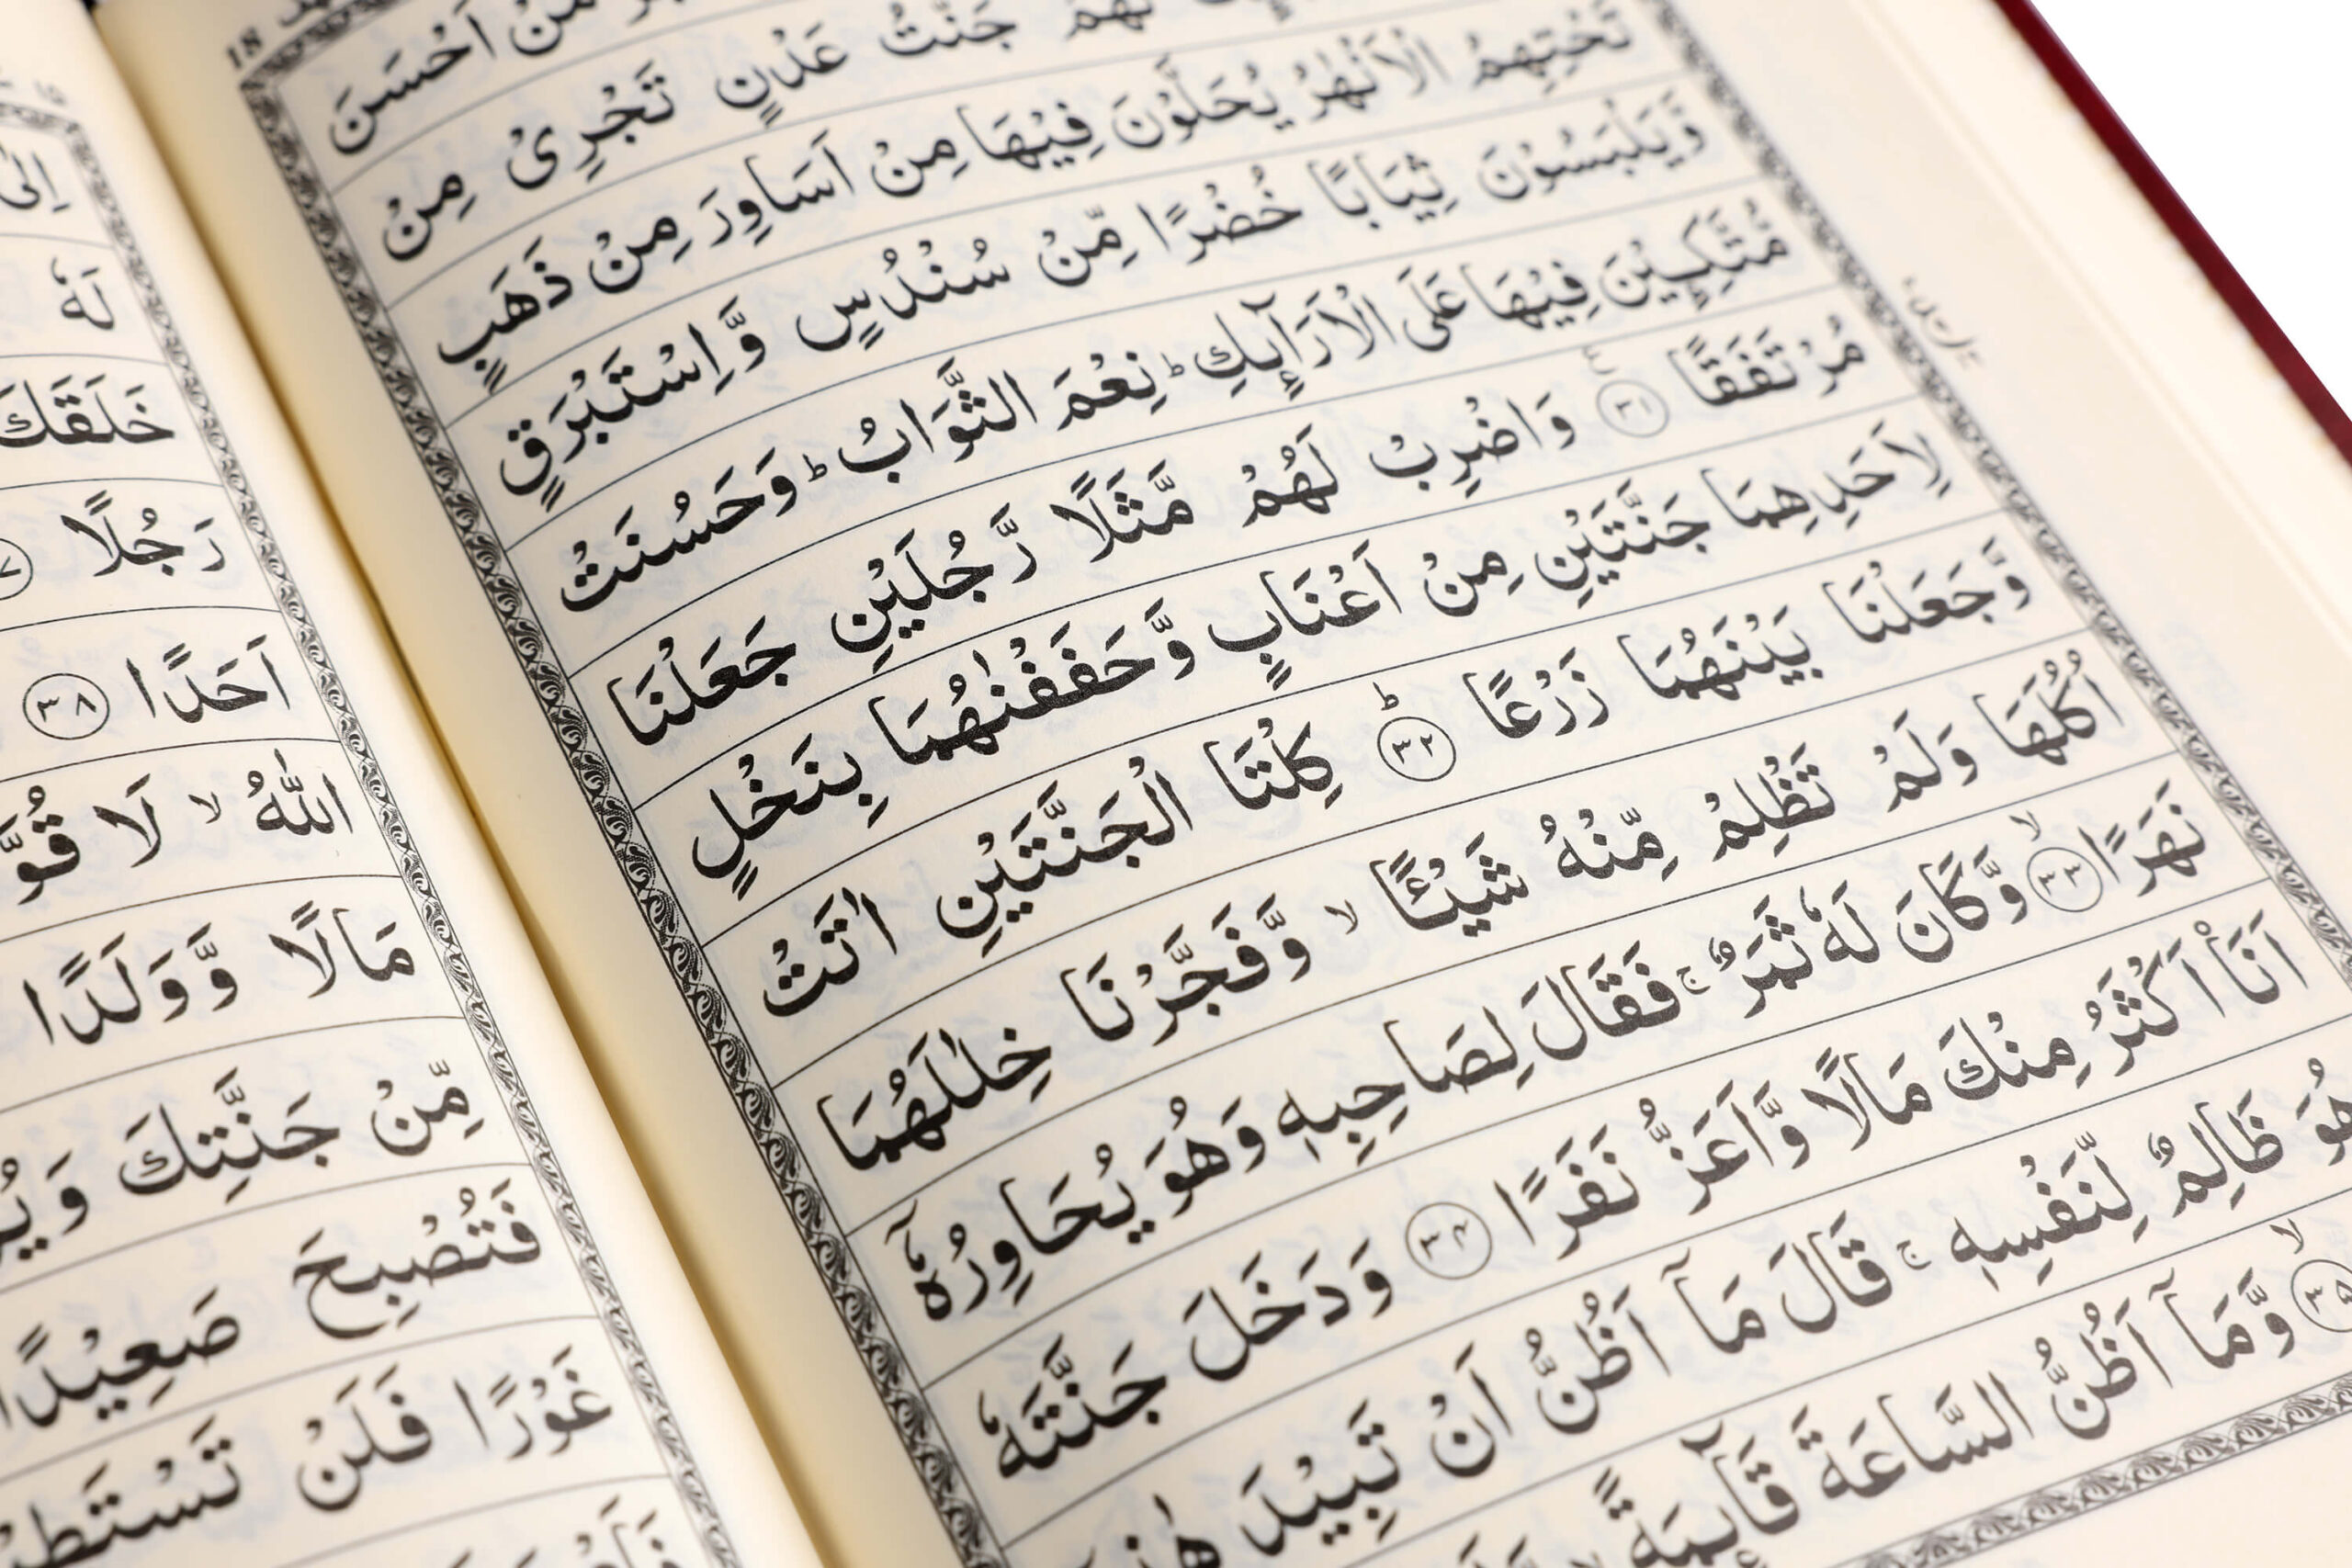 18
مَنْ اَحْسَنَ
لَهُمْ جَنّٰتُ عَدْنٍ تَجْرِیْ مِنْ
تَحْتِهِمُ الْاَنْهٰرُ یُحَلَّوْنَ فِیْهَا مِنْ اَسَاوِرَ مِنْ ذَهَبٍ
وَّیَلْبَسُوْنَ ثِیَابًا خُضْرًا مِّنْ سُنْدُسٍ وَّاِسْتَبْرَقٍ
مُّتَّكِـِٕیْنَ فِیْهَا عَلَی الْاَرَآىِٕكِ ؕ نِعْمَ الثَّوَابُ ؕ وَحَسُنَتْ
مُرْتَفَقًا ۟۠ ﴿۳۱﴾ وَاضْرِبْ لَهُمْ مَّثَلًا رَّجُلَیْنِ جَعَلْنَا
لِاَحَدِهِمَا جَنَّتَیْنِ مِنْ اَعْنَابٍ وَّحَفَفْنٰهُمَا بِنَخْلٍ
وَّجَعَلْنَا بَیْنَهُمَا زَرْعًا ؕ ﴿۳۲﴾ كِلْتَا الْجَنَّتَیْنِ اٰتَتْ
اُكُلَهَا وَلَمْ تَظْلِمْ مِّنْهُ شَیْـًٔا ۙ وَّفَجَّرْنَا خِلٰلَهُمَا
نَهَرًا ۙ ﴿۳۳﴾ وَّكَانَ لَهٗ ثَمَرٌ ۚ فَقَالَ لِصَاحِبِهٖ وَهُوَ یُحَاوِرُهٗۤ
اَنَا اَكْثَرُ مِنْكَ مَالًا وَّاَعَزُّ نَفَرًا ﴿۳۴﴾ وَدَخَلَ جَنَّتَهٗ
هُوَ ظَالِمٌ لِّنَفْسِهٖ ۚ قَالَ مَاۤ اَظُنُّ اَنْ تَبِیْدَ هٰذِهٖۤ
ۙ ﴿۳۵﴾ وَّمَاۤ اَظُنُّ السَّاعَةَ قَآىِٕمَةً
لَهٗ
خَلَقَكَ
رَجُلًا
اَحَدًا ﴿۳۸﴾
اللّٰهُ ۙ لَا قُوَّةَ
مَالًا وَّوَلَدًا
مِّنْ جَنَّتِكَ
فَتُصْبِحَ صَعِیْدًا
غَوْرًا فَلَنْ تَسْتَطِیْعَ